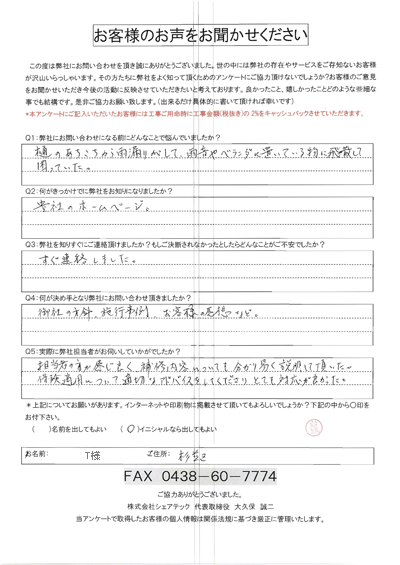 お客様のお声をお聞かせください
この度は弊社にお問い合わせを頂き誠にありがとうございました。世の中には弊社の存在やサービスをご存知ないお客様
が沢山いらっしゃいます。その方たちに弊社をよく知って頂くためのアンケートにご協力頂けないでしょうか?お客様のご意見
をお聞かせいただき今後の活動に反映させていただきたいと考えております。良かったこと、嬉しかったことどのような些細な
事でも結構です。是非ご協力お願い致します。(出来るだけ具体的に書いて頂ければ幸いです)
*本アンケートにご記入いただいたお客様には工事ご用命時に工事金額(税抜き)の2%をキャッシュバックさせていただきます。
Q1:弊社にお問い合わせになる前にどんなことで悩んでいましたか?
樋のあちこちから雨漏りがして、雨音やベランダに置いている物に飛散して
困っていた。
Q2:何がきっかけでに弊社をお知りになりましたか?
貴社のホームページ。
Q3:弊社を知りすぐにご連絡頂けましたか?もしご決断されなかったとしたらどんなことがご不安でしたか?
すぐ連絡しました。
Q4:何が決め手となり弊社にお問い合わせ頂きましたか?
御社の方針、施行事例、お客様の感想など。
Q5:実際に弊社担当者がお伺いしていかがでしたか?
担当者の方が感じ良く、補修内容についても分かり易く説明して頂いた。
保険適用について適切なアドバイスをしてくださりとても対応が良かった。
*上記についてお願いがあります。インターネットや印刷物に掲載させて頂いてもよろしいでしょうか?下記の中から〇印を
お付下さい。
( )名前を出してもよい (〇)イニシャルなら出してもよい
お名前: T様 ご住所: 杉並区
FAX 0438-60-7774
ご協力ありがとうございました。
株式会社シェアテック 代表取締役 大久保 誠二
当アンケートで取得したお客様の個人情報は関係法規に基づき厳正に管理いたします。